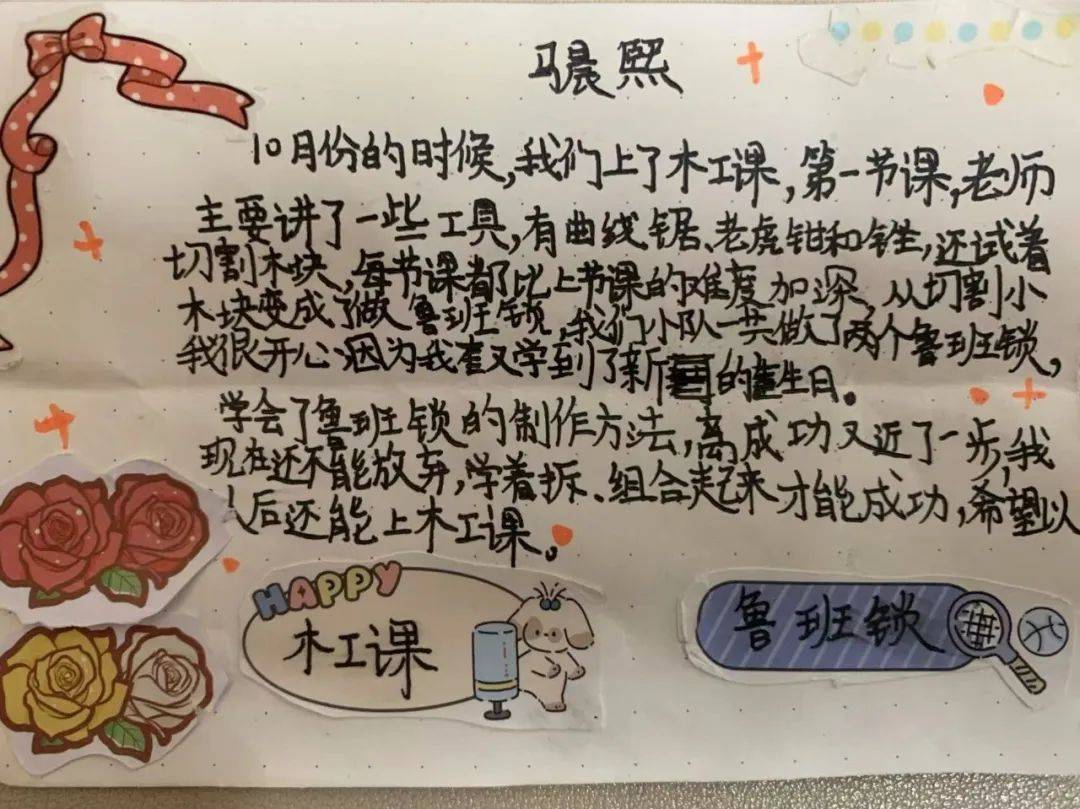 马晨熙
10月份的时候,我们上了木工课,第一节课,老师
主要讲了一些工具,有曲线锯、老虎钳和锉,还试着
切割木块,每节课都比上节课的难度加深,从切割小
木块变成了做鲁班锁,我们小队一共做了两个鲁班锁,
我很开心因为我又学到了新的生日。
学会了鲁班锁的制作方法,离成功又近了一步,我
现在还不能放弃,学着拆、组合起来才能成功,希望以
后还能上木工课。
HAPPY
木工课
鲁班锁